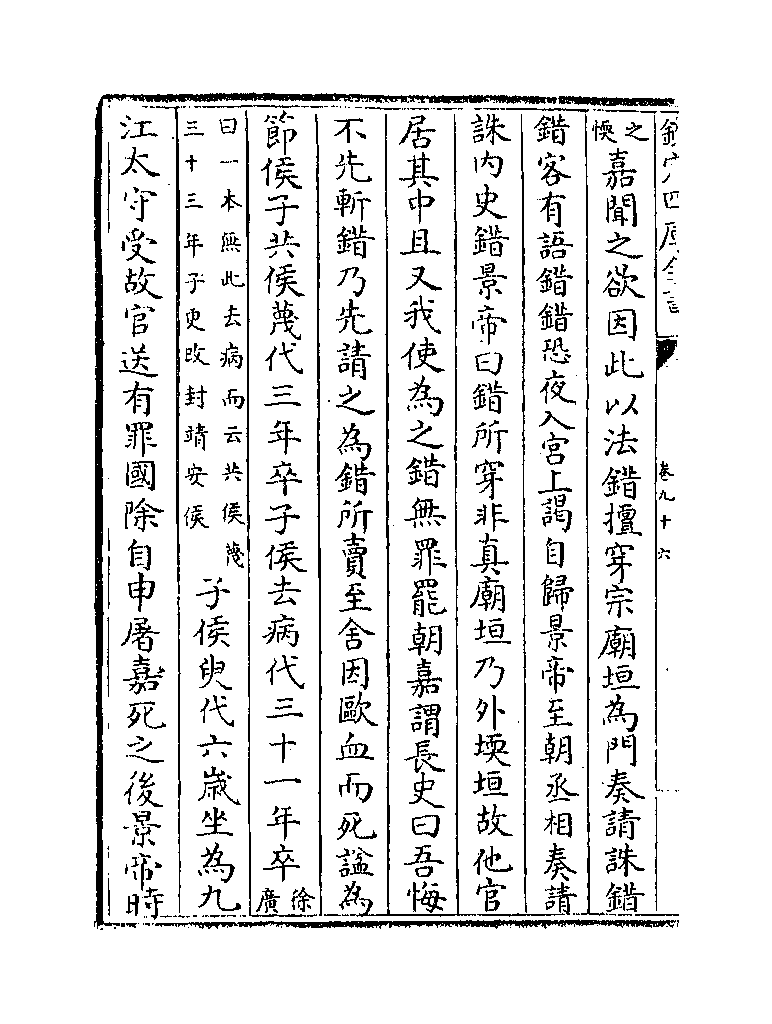 欽定四庫全書
卷九十六
之
愞
嘉聞之欲因此以法錯擅穿宗廟垣為門奏請誅錯
錯客有語錯錯恐夜入宮上謁自歸景帝至朝丞相奏請
誅內史錯景帝曰錯所穿非真廟垣乃外堧垣故他官
居其中且又我使為之錯無罪罷朝嘉謂長史曰吾悔
不先斬錯乃先請之為錯所賣至舍因歐血而死諡為
節侯子共侯蔑代三年卒子侯去病代三十一年卒
徐
廣
曰一本無此去病而云共侯蔑
三十三年子臾改封靖安侯
子侯臾代六歲坐為九
江太守受故官送有罪國除自申屠嘉死之後景帝時